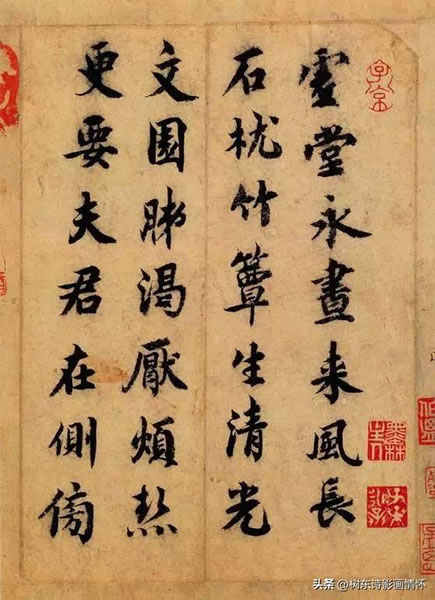 虛堂永晝来風長
石枕竹簟生清光
文園肺渴厭煩熱
更要夫君在側傍
子京
头条 @树东诗影画情怀